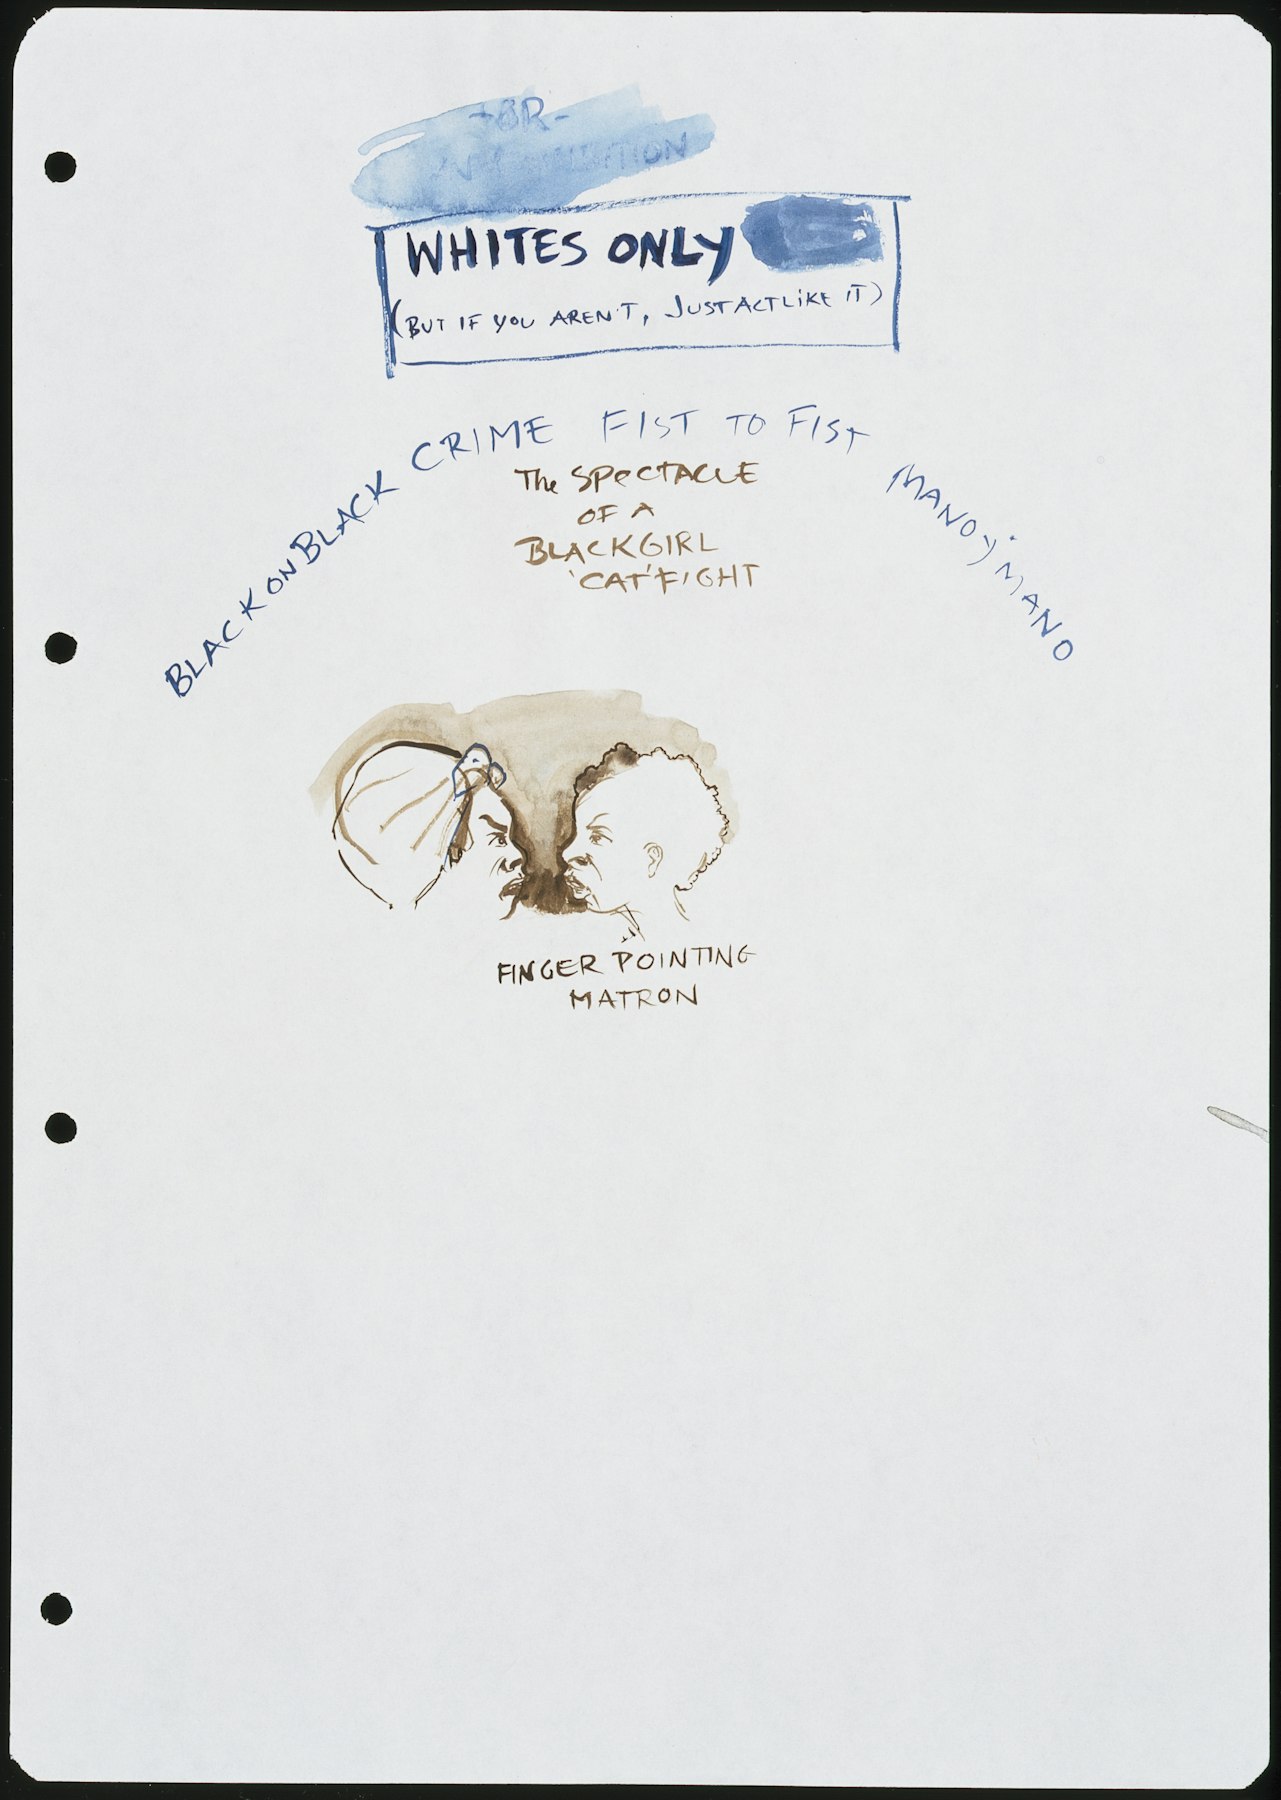 -OR-
WHITES ONLY
(BUT IF YOU AREN'T, JUST ACT LIKE IT)
BLACK ON BLACK CRIME FIST TO FIST MANO Y MANO
The SPECTACLE
OF A
BLACK GIRL
'CAT' FIGHT
FINGER POINTING
MATRON